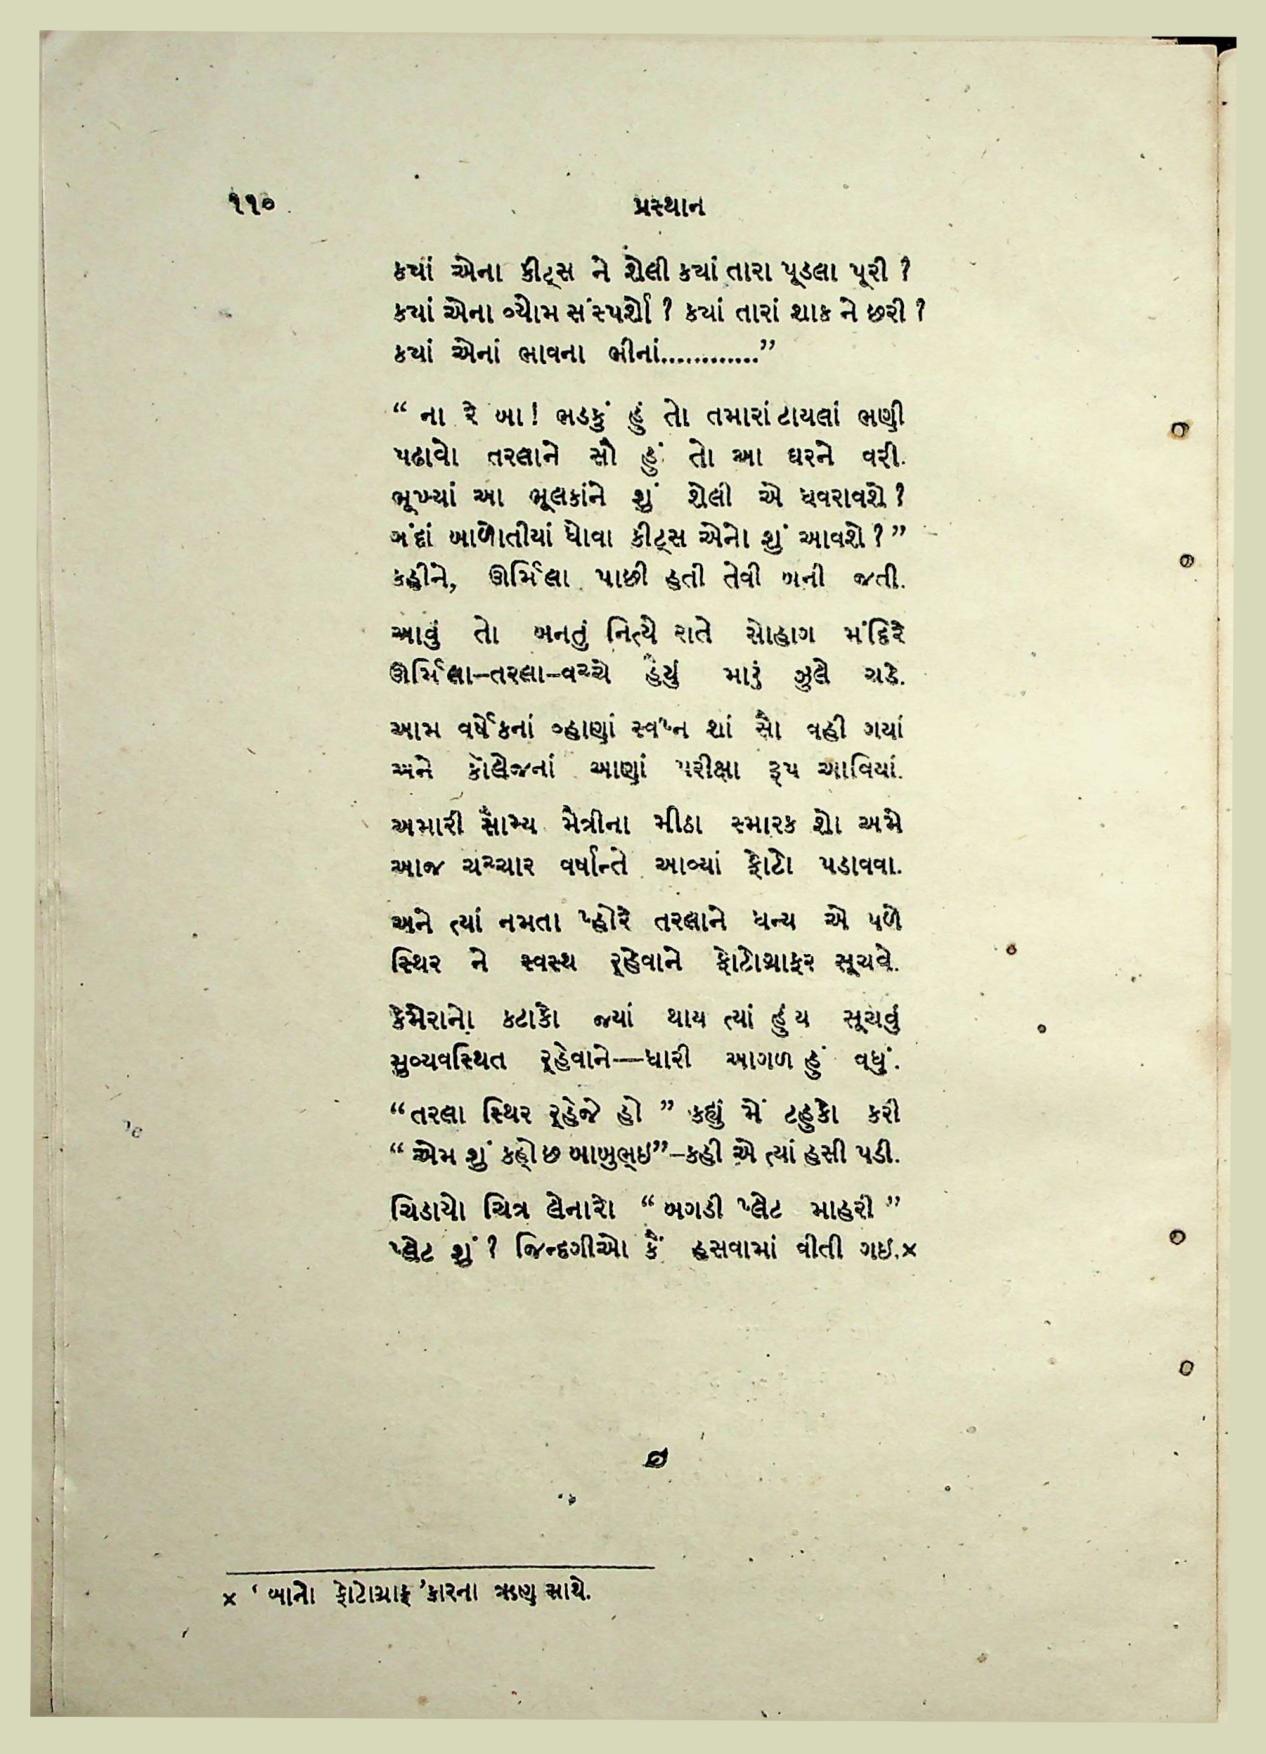 ૧૧૦
પ્રસ્થાન
ક્યાં એના કીટ્સ ને શેલી ક્યાં તારા પૂડલા પૂરી ?
ક્યાં એના વ્યોમ સંસ્પર્શો ? ક્યાં તારાં શાક ને છરી ?
ક્યાં એનાં ભાવના ભીનાં............”
“ ના રે બા! ભડકું હું તો તમારાં ટાયલાં ભણી
પઢાવો તરલાને સૌ હું તો આ ઘરને વરી.
ભૂખ્યાં આ ભૂલકાંને શું શેલી એ ધવરાવશે ?
ગંદાં બાળોતીયાં ધોવા કીટ્સ એનો શું આવશે ? ”
કહીને, ઊર્મિલા પાછી હતી તેવી બની જતી.
આવું તો બનતું નિત્યે રાતે સોહાગ મંદિરે
ઊર્મિલા–તરલા–વચ્ચે હૈયું મારું ઝુલે ચડે.
આમ વર્ષેકનાં વ્હાણાં સ્વપ્ન શાં સૌ વહી ગયાં
અને કૉલેજનાં આણાં પરીક્ષા રૂપ આવિયાં.
અમારી સૌમ્ય મૈત્રીના મીઠા સ્મારક શો અમે
આજ ચચ્ચાર વર્ષાન્તે આવ્યાં ફોટો પડાવવા.
અને ત્યાં નમતા પ્હોરે તરલાને ધન્ય એ પળે
સ્થિર ને સ્વસ્થ ર્‌હેવાને ફોટોગ્રાફર સૂચવે.
કેમેરાનો કટાકો જ્યાં થાય ત્યાં હુંય સૂચવું
સુવ્યવસ્થિત ર્‌હેવાને—ધારી આગળ હું વધું.
“તરલા સ્થિર ર્‌હેજે હો ” કહ્યું મેં ટહુકો કરી
“ એમ શું કહો છ બાબુભાઇ”–કહી એ ત્યાં હસી પડી.
ચિડાયો ચિત્ર લેનારો “ બગડી પ્લેટ માહરી ”
પ્લેટ શું ? જિન્દગીઓ કૈં હસવામાં વીતી ગઇ.×
× ‘ બાનો ફોટોગ્રાફ ’કારના ઋણ સાથે.